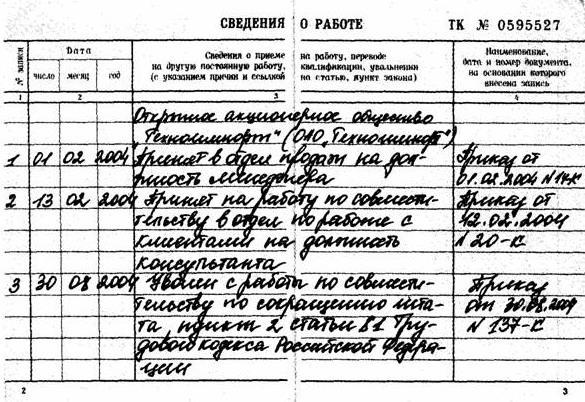 СВЕДЕНИЯ О РАБОТЕ ТК № 0595527
№ записи Дата Сведения о приеме на работу, переводе Наименование,
на другую постоянную работу, квалификации, увольнении дата и номер документа,
число месяц год (с указанием причин и ссылкой на статью, пункт закона) на основании которого
внесена запись
1 2 3 4
Открытое акционерное общество
"Техноимпорт" (ОАО "Техноимпорт")
1 01 02 2004 Принят в отдел продаж на дол- Приказ от
жность менеджера 01.02.2004 N 14-К
2 13 02 2004 Принят на работу по совмести- Приказ от
тельству в отдел по работе с 12.02.2004
клиентами на должность N 20-К
консультанта
3 30 08 2004 Уволен с работы по совмести- Приказ
тельству по сокращению шта- от 30.08.2004
та, пункт 2 статьи 81 Тру- N 137-К
дового кодекса Российской Федера-
ции
2 3